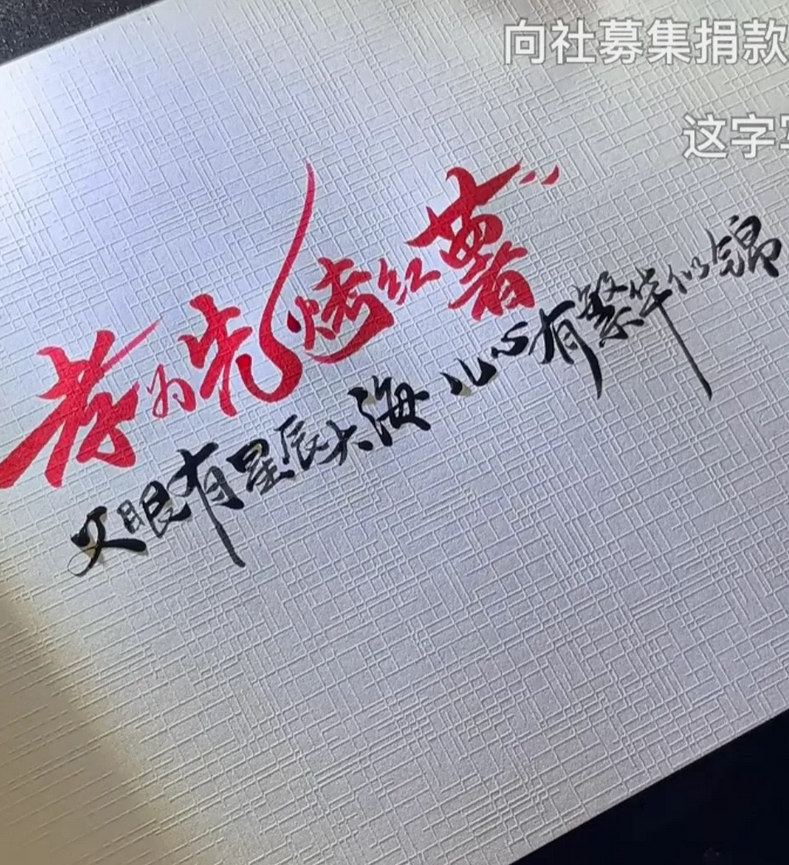 向社募集捐款
这字
孝为先烤红薯
父眼有星辰大海 儿心有繁华似锦